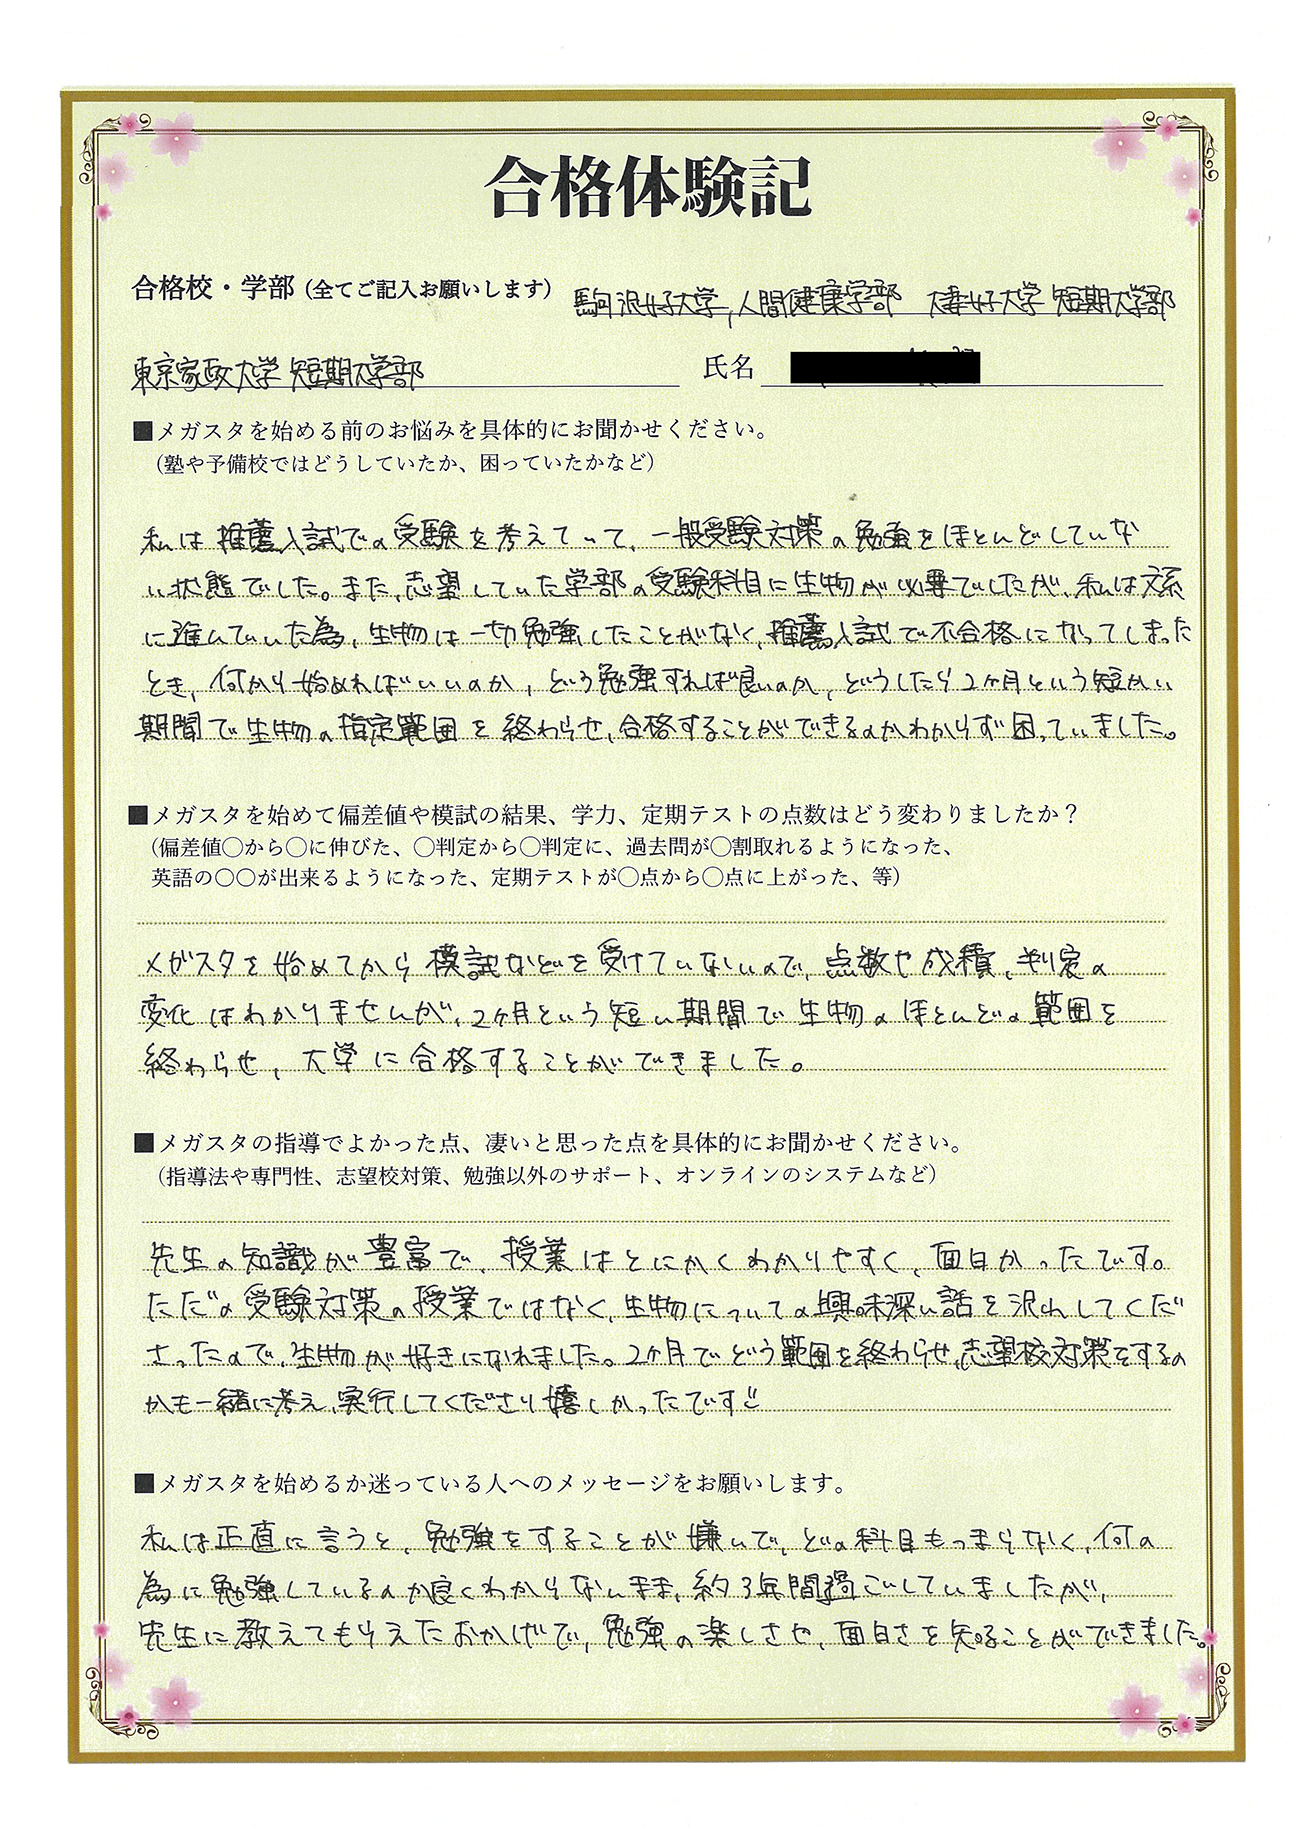 合格体験記
合格校・学部（全てご記入お願いします） 駒沢女子大学,人間健康学部 大妻女子大学 短期大学部
東京家政大学 短期大学部 氏名
■メガスタを始める前のお悩みを具体的にお聞かせください。
（塾や予備校ではどうしていたか、困っていたかなど）
私は推薦入試での受験を考えていて、一般受験対策の勉強をほとんどしていな
い状態でした。また、志望していた学部の受験科目に生物が必要でしたが、私は文系
に進んでいた為、生物は一切勉強したことがなく、推薦入試で不合格になってしまった
とき、何から始めればいいのか、どう勉強すれば良いのか、どうしたら2ヶ月という短かい
期間で生物の指定範囲を終わらせ、合格することができるのかわからず困っていました。
■メガスタを始めて偏差値や模試の結果、学力、定期テストの点数はどう変わりましたか？
（偏差値〇から〇に伸びた、〇判定から〇判定に、過去問が〇割取れるようになった、
英語の〇〇が出来るようになった、定期テストが〇点から〇点に上がった、等）
メガスタを始めてから模試などを受けていないので、点数や成績、判定の
変化はわかりませんが、2ヶ月という短い期間で生物のほとんどの範囲を
終わらせ、大学に合格することができました。
■メガスタの指導でよかった点、凄いと思った点を具体的にお聞かせください。
（指導法や専門性、志望校対策、勉強以外のサポート、オンラインのシステムなど）
先生の知識が豊富で、授業はとにかくわかりやすく、面白かったです。
ただの受験対策の授業ではなく、生物についての興味深い話を沢山してくだ
さったので、生物が好きになれました。2ヶ月でどう範囲を終わらせ、志望校対策をするの
かも一緒に考え、実行してくださり嬉しかったです
■メガスタを始めるか迷っている人へのメッセージをお願いします。
私は正直に言うと、勉強をすることが嫌いで、どの科目もつまらなく、何の
為に勉強しているのか良くわからないまま、約3年間過ごしていましたが、
先生に教えてもらえたおかげで、勉強の楽しさや、面白さを知ることができました。